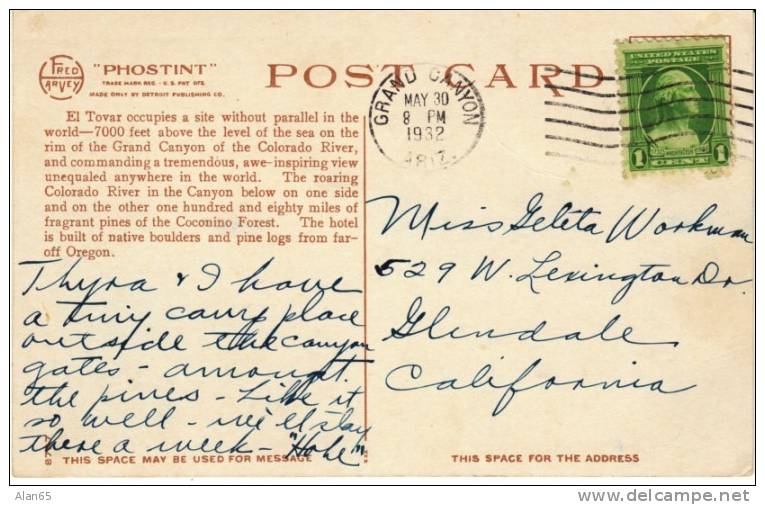 FRED HARVEY
"PHOSTINT"
TRADE MARK REG. - U.S. PAT. OFF.
MADE ONLY BY DETROIT PUBLISHING CO.
POST CARD
El Tovar occupies a site without parallel in the
world—7000 feet above the level of the sea on the
rim of the Grand Canyon of the Colorado River,
and commanding a tremendous, awe-inspiring view
unequaled anywhere in the world. The roaring
Colorado River in the Canyon below on one side
and on the other one hundred and eighty miles of
fragrant pines of the Coconino Forest. The hotel
is built of native boulders and pine logs from far-
off Oregon.
GRAND CANYON
MAY 30
8 PM
1932
ARIZ.
UNITED STATES POSTAGE
1 CENT 1
Thyra & I have
a tiny camp place
outside the canyon
gates - amongst
the pines - Like it
so well - we'll stay
there a week -
Miss Geleta Workman
529 W. Lexington Dr.
Glendale
California
THIS SPACE MAY BE USED FOR MESSAGE
THIS SPACE FOR THE ADDRESS
Alan65
http://www.delcampe.net